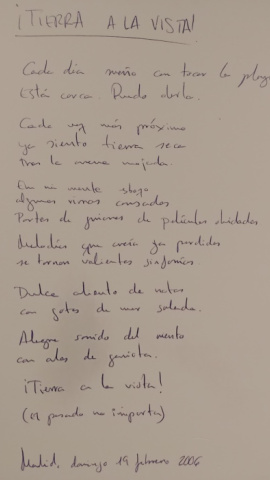 ¡TIERRA A LA VISTA!
Cada día sueño con tocar la playa
Está cerca. Puedo verla.
Cada vez más próxima
ya siento tierra seca
tras la arena mojada.
En mi mente
algunas rimas cansadas
Partes de guiones de películas olvidadas
Melodías que creía ya perdidas
se tornan valientes sinfonías.
Dulce aliento de notas
con gotas de mar salada.
Alegre sonido del viento
con alas de gaviota.
¡Tierra a la vista!
(el pasado no importa)
Madrid, domingo 19 febrero 2006